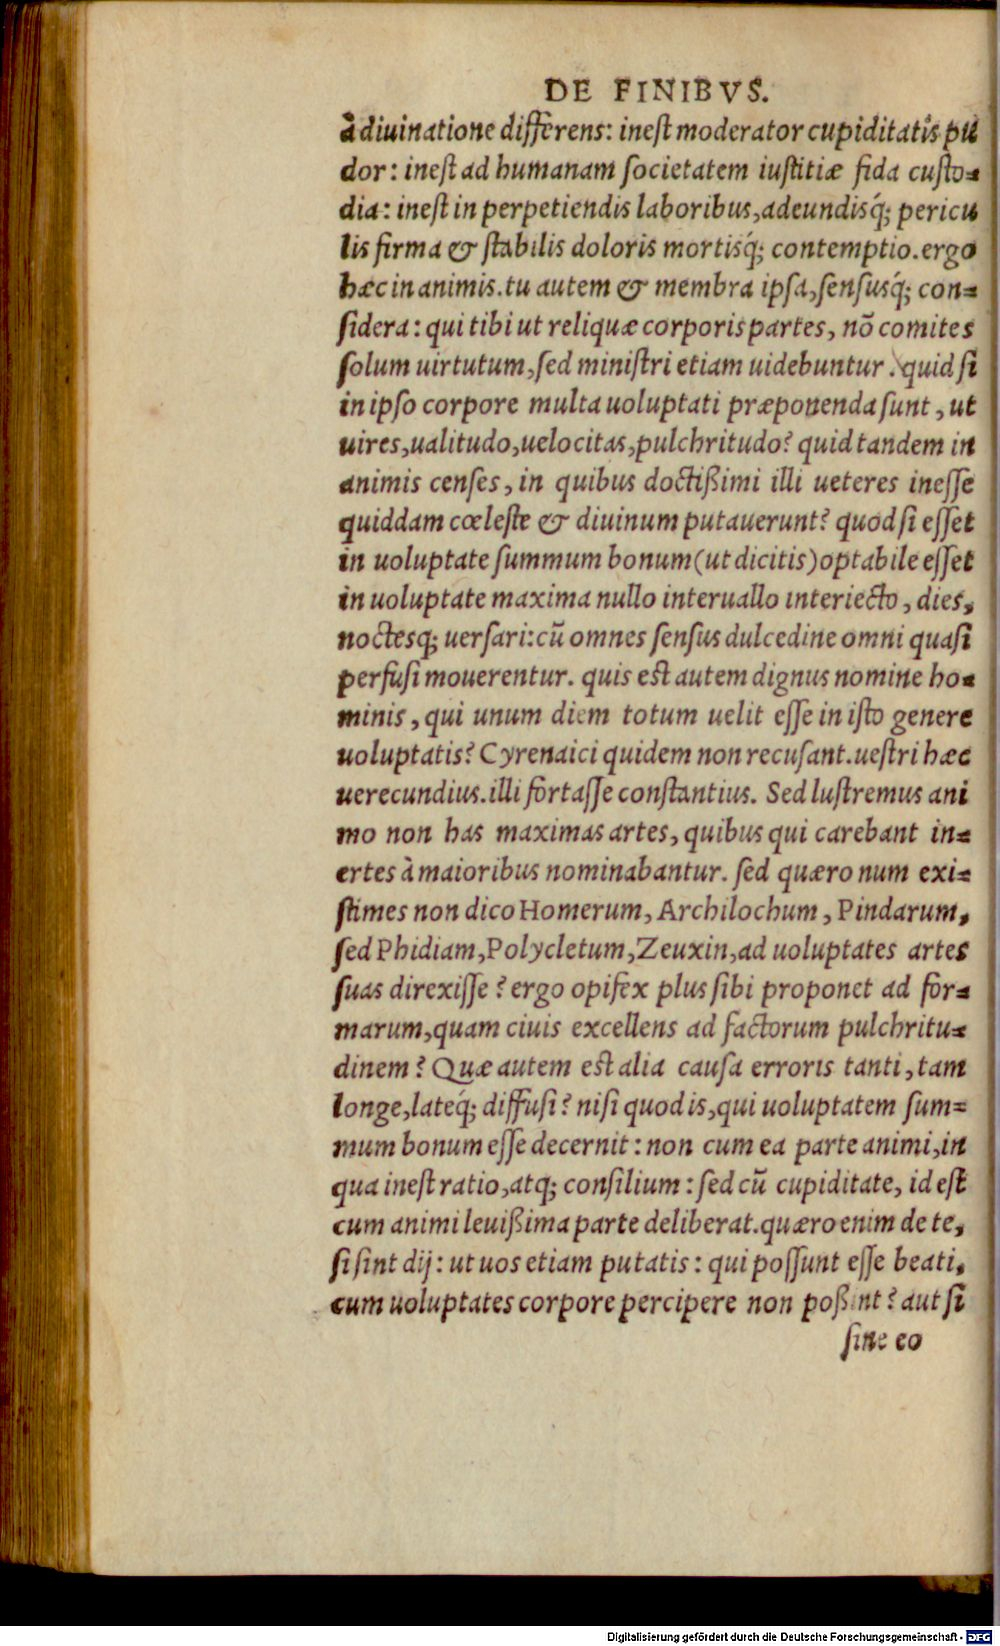 DE FINIBVS.
à diuinatione differens: inest moderator cupiditatis pu
dor: inest ad humanam societatem iustitiæ fida custo-
dia: inest in perpetiendis laboribus, adeundisq́; pericu
lis firma & stabilis doloris mortisq́; contemptio. ergo
hæc in animis. tu autem & membra ipsa, sensusq́; con-
sidera: qui tibi ut reliquæ corporis partes, nõ comites
solum uirtutum, sed ministri etiam uidebuntur. quid si
in ipso corpore multa uoluptati præponenda sunt, ut
uires, ualitudo, uelocitas, pulchritudo? quid tandem in
animis censes, in quibus doctißimi illi ueteres inesse
quiddam cœleste & diuinum putauerunt? quod si esset
in uoluptate summum bonum (ut dicitis) optabile esset
in uoluptate maxima nullo interuallo interiecto, dies,
noctesq; uersari: cũ omnes sensus dulcedine omni quasi
perfusi mouerentur. quis est autem dignus nomine ho-
minis, qui unum diem totum uelit esse in isto genere
uoluptatis? Cyrenaici quidem non recusant. uestri hæc
uerecundius. illi fortasse constantius. Sed lustremus ani
mo non has maximas artes, quibus qui carebant in-
ertes à maioribus nominabantur. sed quæro num exi-
stimes non dico Homerum, Archilochum, Pindarum,
sed Phidiam, Polycletum, Zeuxin, ad uoluptates artes
suas direxisse? ergo opifex plus sibi proponet ad for-
marum, quam ciuis excellens ad factorum pulchritu-
dinem? Quæ autem est alia causa erroris tanti, tam
longe, lateq́; diffusi? nisi quod is, qui uoluptatem sum-
mum bonum esse decernit: non cum ea parte animi, in
qua inest ratio, atq; consilium: sed cũ cupiditate, id est
cum animi leuißima parte deliberat. quæro enim de te,
si sint dij: ut uos etiam putatis: qui possunt esse beati,
cum uoluptates corpore percipere non poßint? aut si
sine eo
Digitalisierung gefördert durch die Deutsche Forschungsgemeinschaft - DFG